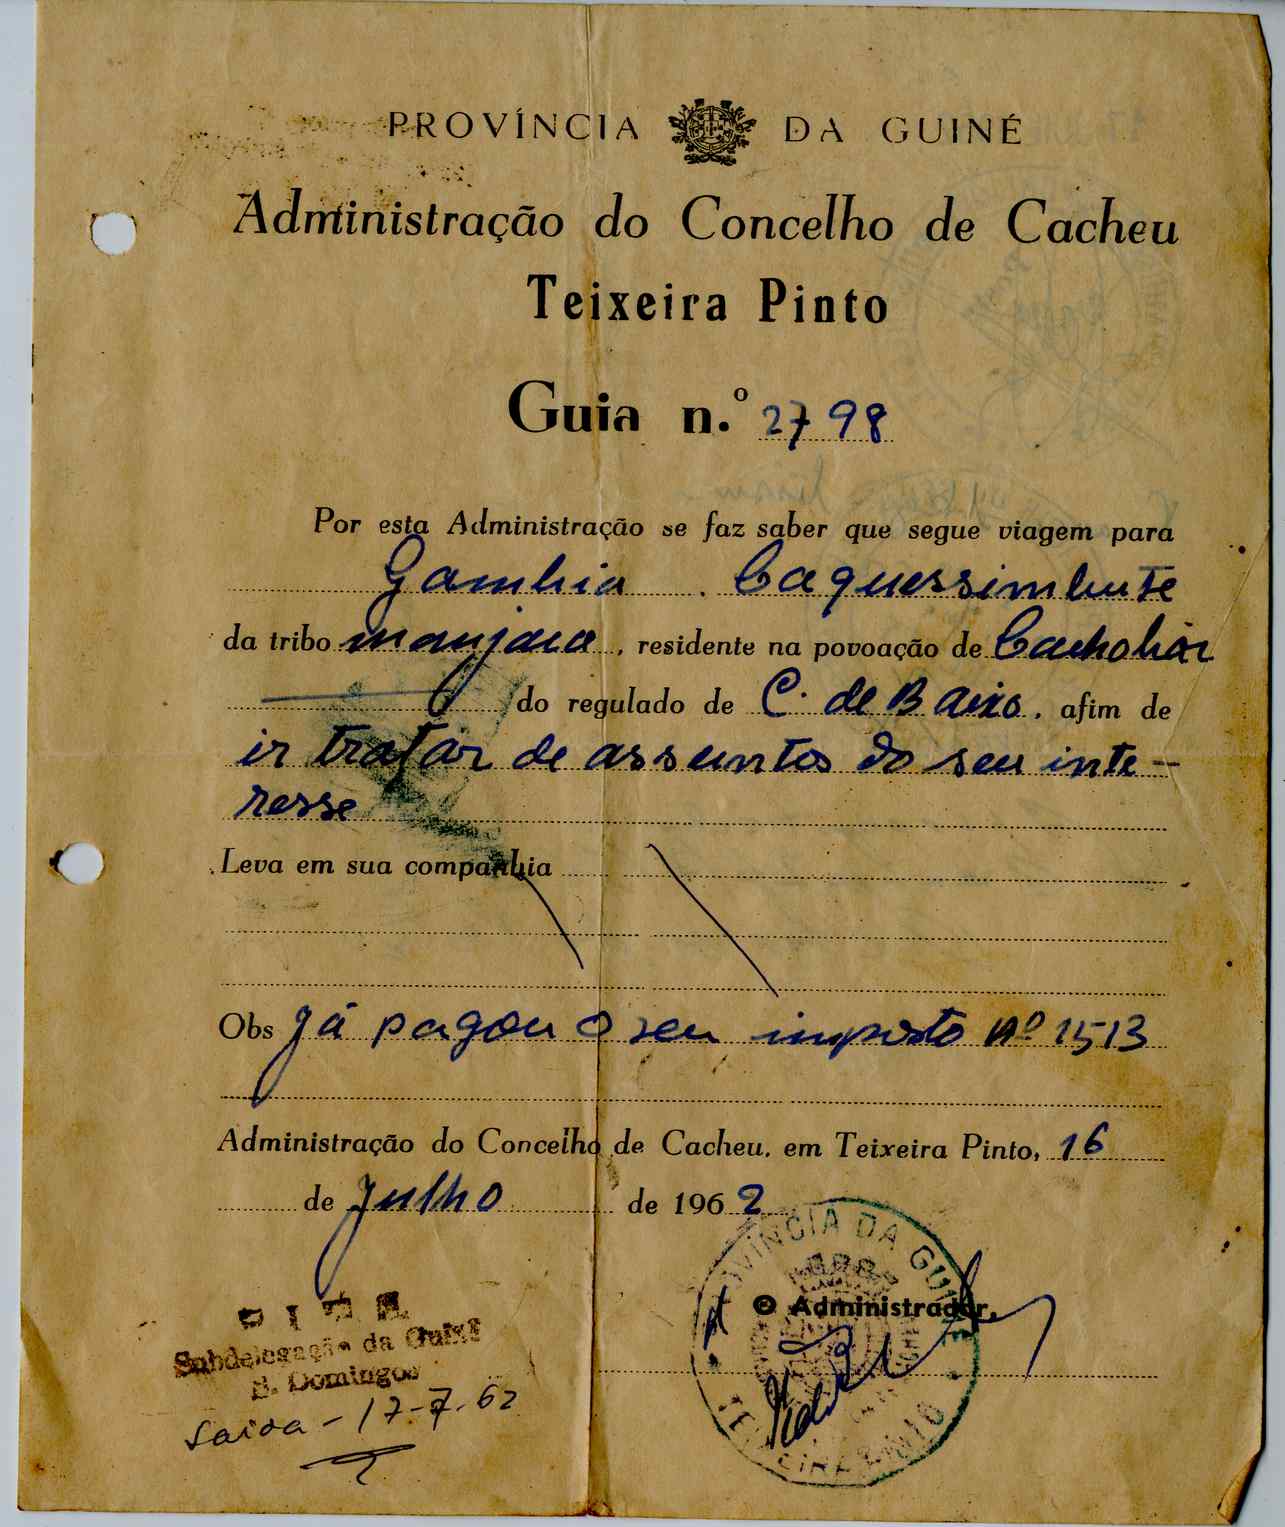 PROVÍNCIA DA GUINÉ
Administração do Concelho de Cacheu
Teixeira Pinto
Guia n.º 2798
Por esta Administração se faz saber que segue viagem para
Gambia . Caquessimbute
da tribo manjaca, residente na povoação de
do regulado de C. de Baixo, afim de
ir tratar de assuntos do seu inte-
resse
Leva em sua companhia
Obs Já pagou o seu imposto nº 1513
Administração do Concelho de Cacheu, em Teixeira Pinto, 16
de Julho de 1962
PROVÍNCIA DA GUINÉ
O Administrador,
TEIXEIRA PINTO
P I D E
Subdelegação da Guiné
S. Domingos
Saida - 17-7-62